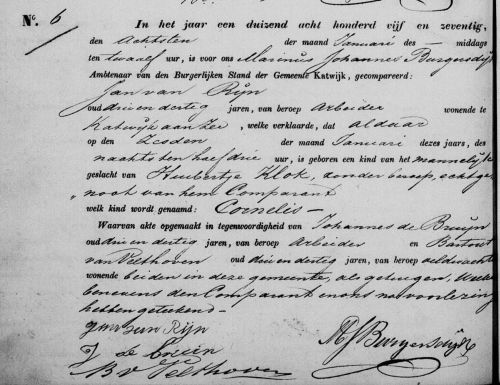 No. 6
In het jaar een duizend acht honderd vijf en zeventig,
den Achtsten der maand Januari des — middags
ten twaalf uur, is voor ons Marinus Johannes Burgersdijk
Ambtenaar van den Burgerlijken Stand der Gemeente Katwijk, gecompareerd:
Jan van Rijn
oud drie en dertig jaren, van beroep Arbeider wonende te
Katwijk aan Zee, welke verklaarde, dat aldaar
op den Zesden der maand Januari dezes jaars, des
nachts ten half drie uur, is geboren een kind van het mannelijk
geslacht van Huibertje Klok, zonder beroep, echtge
noot van hem Comparant
welk kind wordt genaamd: Cornelis —
Waarvan akte opgemaakt in tegenwoordigheid van Johannes de Bruijn
oud drie en dertig jaren, van beroep Arbeider en Bastiaan
van Velthoven oud drie en dertig jaren, van beroep veldwachter
wonende beiden in deze gemeente, als getuigen, Welke
benevens den Comparant en ons na voorlezing
hebben geteekend —
Jan van Rijn
J de Bruin
B v Velthoven
MJ Burgersdijk